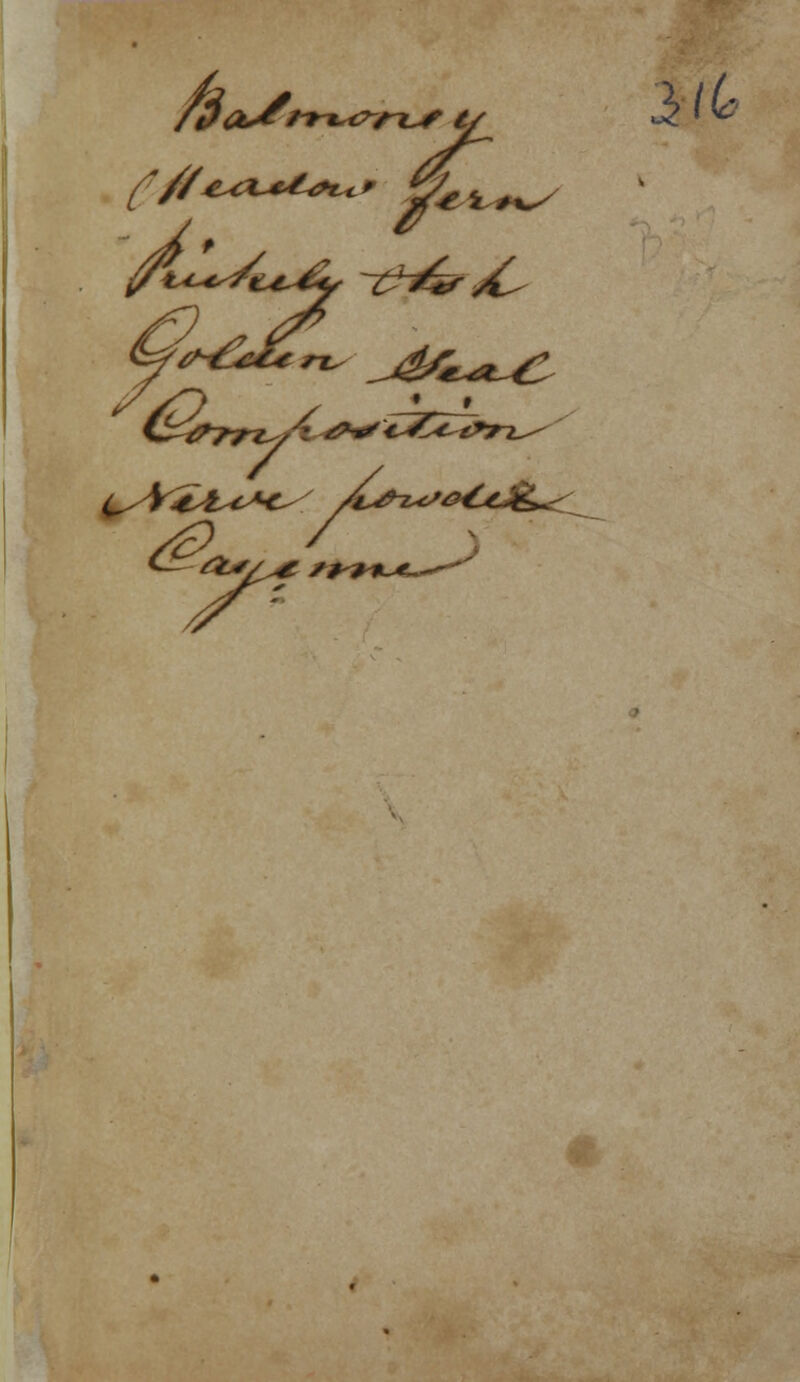 Balmoney 316
Meadow Fern
Prickely Ash
Golden Seal
Composition
Nerve powder
Cayenne